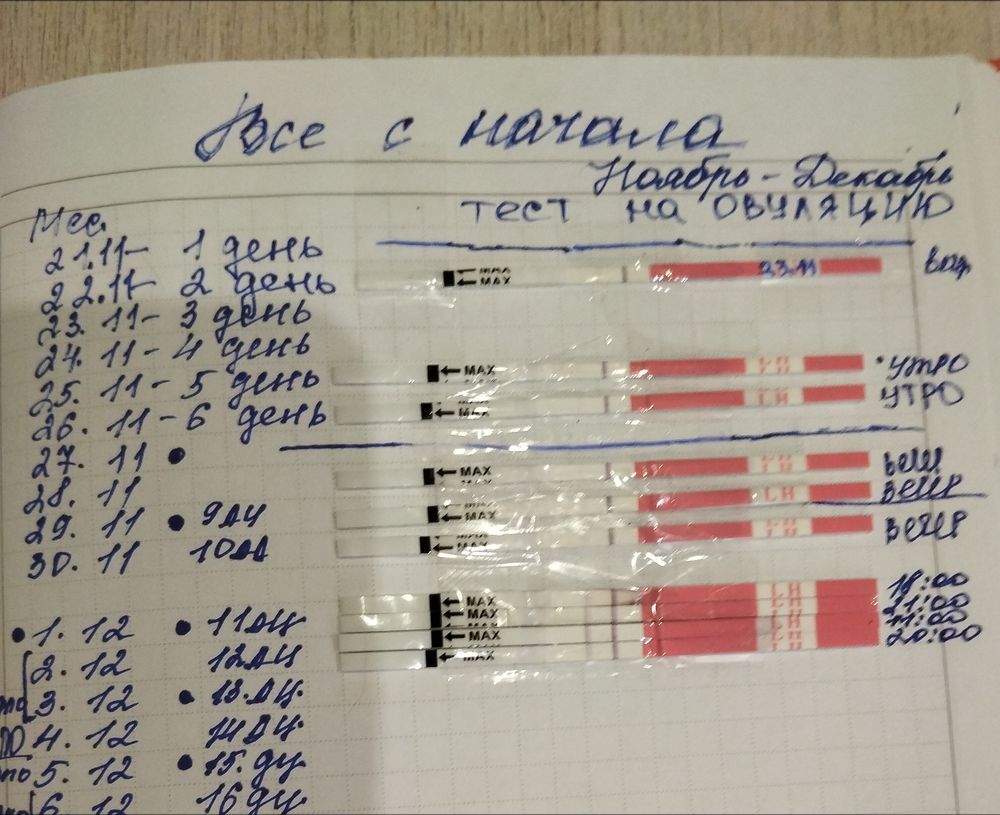 Все с начала
Ноябрь - Декабрь
тест на овуляцию
Мес.
21.11- 1 день
22.11- 2 день
23.11- 3 день
24.11- 4 день
25.11- 5 день
26.11- 6 день
27.11 •
28.11
29.11 • 9ДЦ
30.11 10ДЦ
• 1.12 • 11ДЦ
2.12 12ДЦ
3.12 • 13.ДЦ.
4.12 14ДЦ
5.12 • 15.ДЦ
6.12 16ДЦ
MAX 23.11
MAX LH • УТРО
MAX LH УТРО
MAX LH
MAX LH
MAX LH
MAX LH 18:00
MAX LH 21:00
MAX LH 11:00
MAX LH 20:00